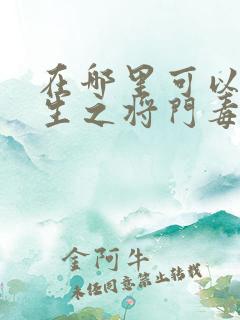 在哪里可以
生之将门毒
金阿牛
未经同意禁止转载